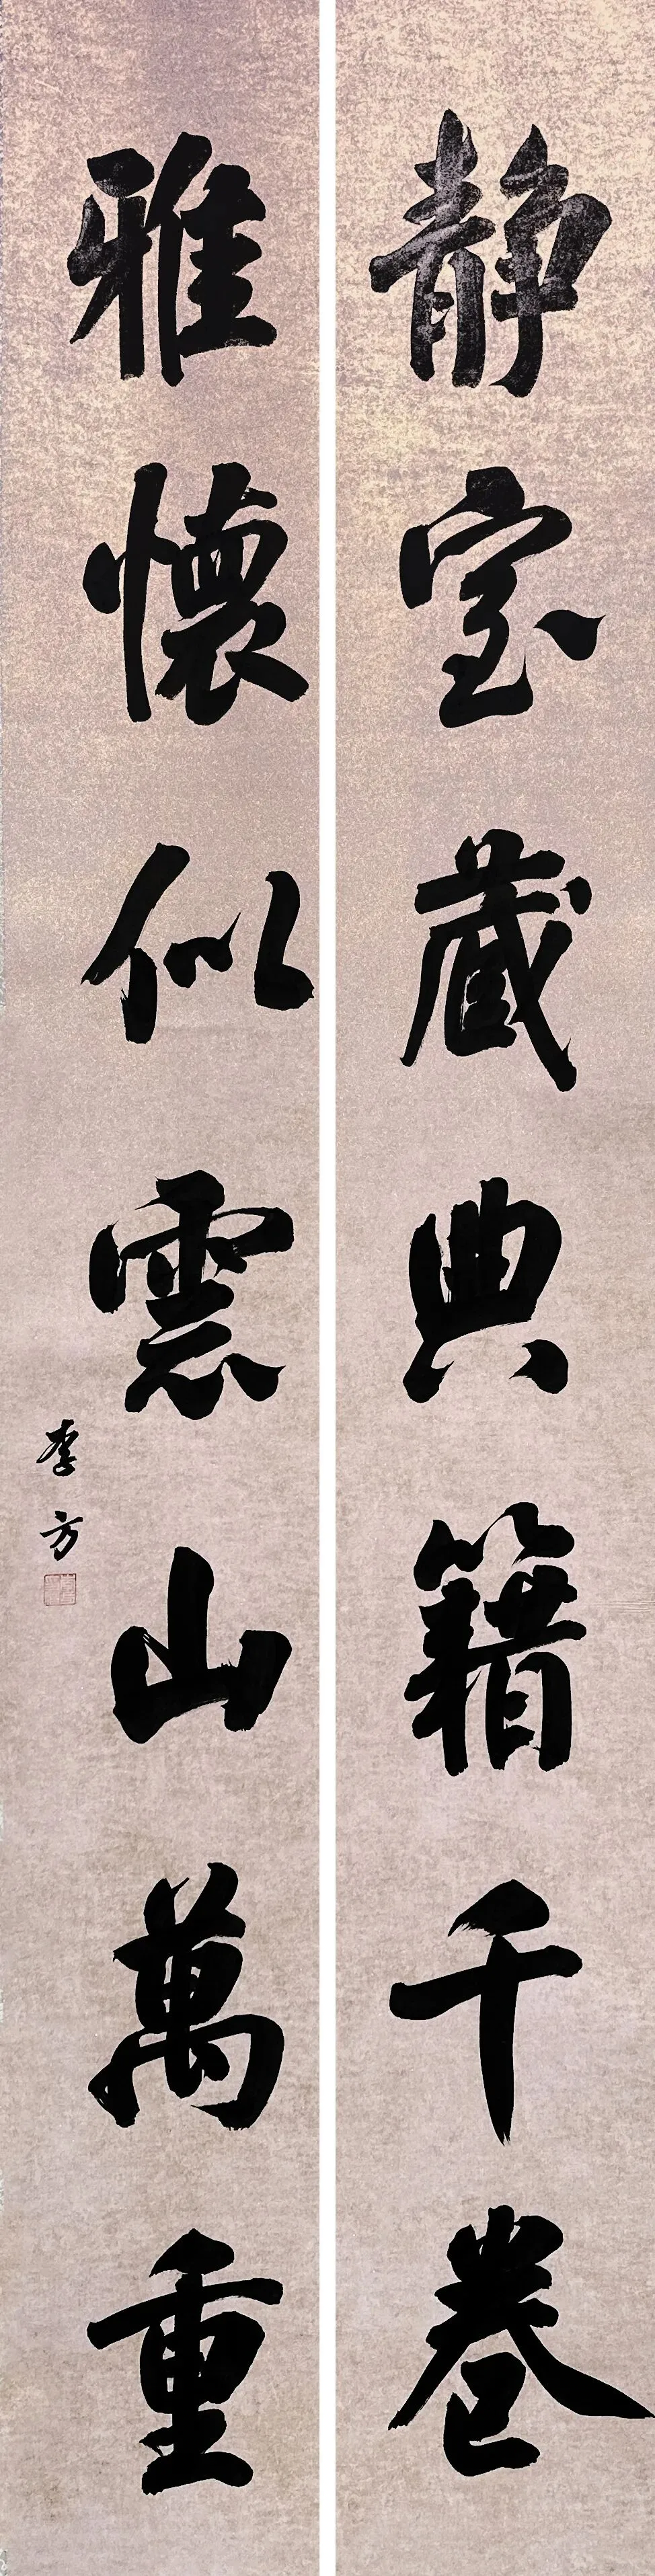 静室藏典籍千卷
雅懷似雲山萬重
李方